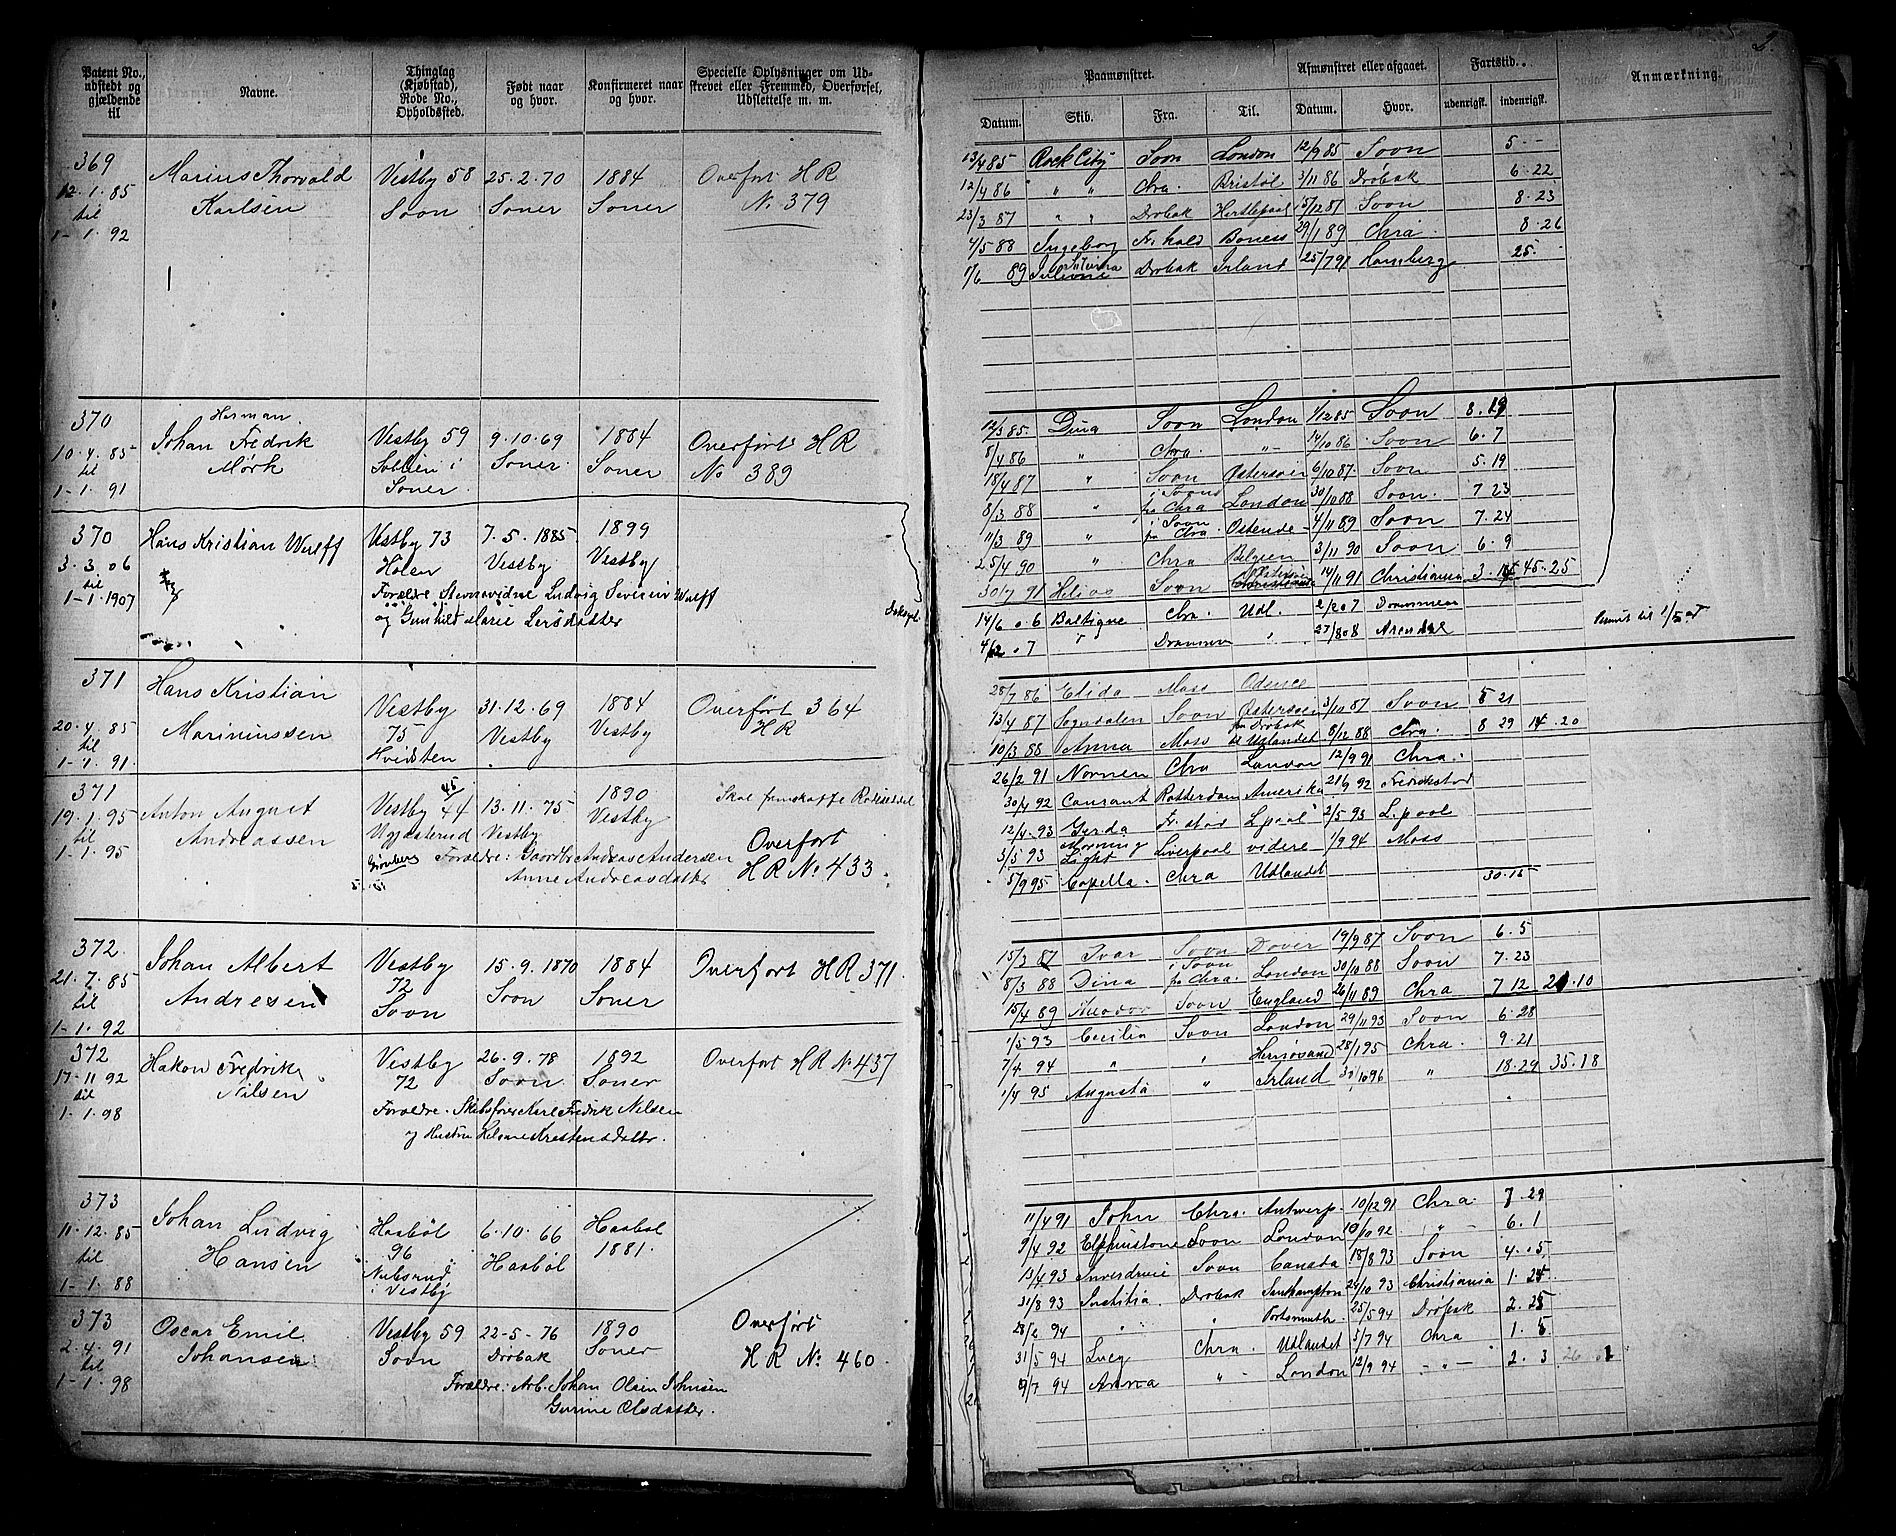 2.
Patent No., udstedt og gjældende til
Navne.
Thinglag (Kjøbstad), Rode No., Opholdssted.
Født naar og hvor.
Konfirmeret naar og hvor.
Specielle Oplysninger om Udskrevet eller Fremmed, Overførsel, Udslettelse m. m.
Paamønstret.
Afmønstret eller afgaaet.
Fartstid.
Anmærkning.
Datum. Skib. Fra. Til. Datum. Hvor. udenrigsk. indenrigsk.
369 Marius Thorvald Vestby 58 25-2-70 1884 Overført H R
12-1-85 Karlsen Soon Soner Soner No 379
til
1-1-92
13/4 85 Rock City Soon London 12/9 85 Soon 5 - -
12/4 86 " " Chra. Bristol 3/11 86 Drøbak 6-22
23/3 87 " " Drøbak Hartlepool 15/12 87 Soon 8-23
4/5 88 Ingeborg Fr.hald Boness 29/1 89 Chra 8-26
1/6 89 Drøbak Irland 25/7 91 Hamburg 25-
370 Herman
10-4-85 Johan Fredrik Vestby 59 9-10-69 1884 Overført H R
til Mørk Sollien i Soner Soner No 389
1-1-91 Soner
12/3 85. Dina Soon London 1/12 85 Soon 8.19
8/4 86 " Chra. -"- 14/10 86 Soon 6.7
18/4 87 " Soon Østersøen 6/10 87 Soon 5.19
8/3 88 " i Soon fra Chra London 30/10 88 Soon. 7 23
11/3 89 " i Soon fra Chra. Ostende 4/11 89 Soon 7.24
25/4 90 " Chra Belgien 3/11 90 Soon 6.9
30/7 91 Helios Soon Østersøen 14/11 91 Christiania 3. 45-25
370 Hans Kristian Wulff Vestby 73 7-5-1885 1899
3-3-06 Holen Vestby Vestby
til Forældre Ludvig Severin Wulff
1-1-1907 og Gunhild Marie Larsdatter
14/6 06 Baltique Chra. Udl. 2/2 07 Drammen
4/12 07 " Drammen " 27/8 08 Arendal
til 1/5 07
371 Hans Kristian Vestby 31-12-69 1884 Overført 364
20-4-85 Marinussen 75 Vestby Vestby H R
til Hvidsten
1-1-91.
28/7 86 Elida Moss Odense
13/4 87 Sogndalen Soon Østersøen 3/10 87 Soon 8 21
10/3 88 Anna Moss fra Drøbak til Udlandet 8/12 88 Chra. 8 29 14-20
371 Anton August Vestby 44 45 13-11-75 1890 Skal fremskaffe Rulleseddel
19-1-95 Andreassen Vestby Vestby Overført
til Forældre: Gaardbr. Andreas Andersen H R No 433.
1-1-95 Anne Andreasdatter
26/2 91 Nornen Chra London 12/9 91 Chra.
30/4 92 Courant Rotterdam Amerika 21/9 92 Fredrikstad
12/4 93 Gyrda Fr.stad L.pool 2/5 93 L.pool
3/5 93 Morning Light Liverpool videre 1/9 94 Moss
5/9 95 Capella. Chra Udlandet 30-15
372 Johan Albert Vestby 15-9-1870 1884 Overført H R 371.
21-7-85 Andresen 72 Soon Soner
til Soon
1-1-92
15/3 87 Ivar Soon Dover 19/9 87 Soon 6.5
8/3 88 Dina i Soon fra Chra. London 30/10 88 Soon 7.23
15/4 89 Soon England 26/11 89 Chra 7 12 21.10
372 Hakon Fredrik Vestby 26-9-78 1892 Overført H R No 437
17-11-92 Nilsen 72 Soon Soner
til Forældre. Skibsfører Karl Fredrik Nilsen
1-1-98 og Hustru
1/5 93 Cecilia Soon London 29/11 93 Soon 6-28
7/4 94 " " Hernøsand 28/1 95 Chra. 9-21
1/4 95 Augusta " Irland 30/10 96 " 18-29 35.18
373 Johan Ludvig Haabøl 6-10-66 Haabøl
11-12-85 Hansen 96 Haabøl 1881.
til i Vestby
1-1-88
373 Oscar Emil Vestby 59 22-5-76 1890 Overført
2-4-91 Johansen Soon Drøbak Soner H R No 460.
til Forældre: Arb. Johan Olsen
1-1-98 Gurine Olsdatter.
11/4 91 John Chra. Antwerp. 10/12 91 Chra. 7 29
9/4 92 Elphinstone Soon London 10/10 92. -"- 6.1
13/4 93 Soon Canada 18/8 93 Soon 4.05
31/8 93 Justitia. Drøbak 24/10 93 Christiania 1.24
28/2 94 " " Portsmouth 25/5 94 Drøbak 2.25
31/5 94 Lucy Chra. Udlandet 5/7 94 Chra 1.5
9/7 94 Anna " London 12/9 94 -"- 2.3